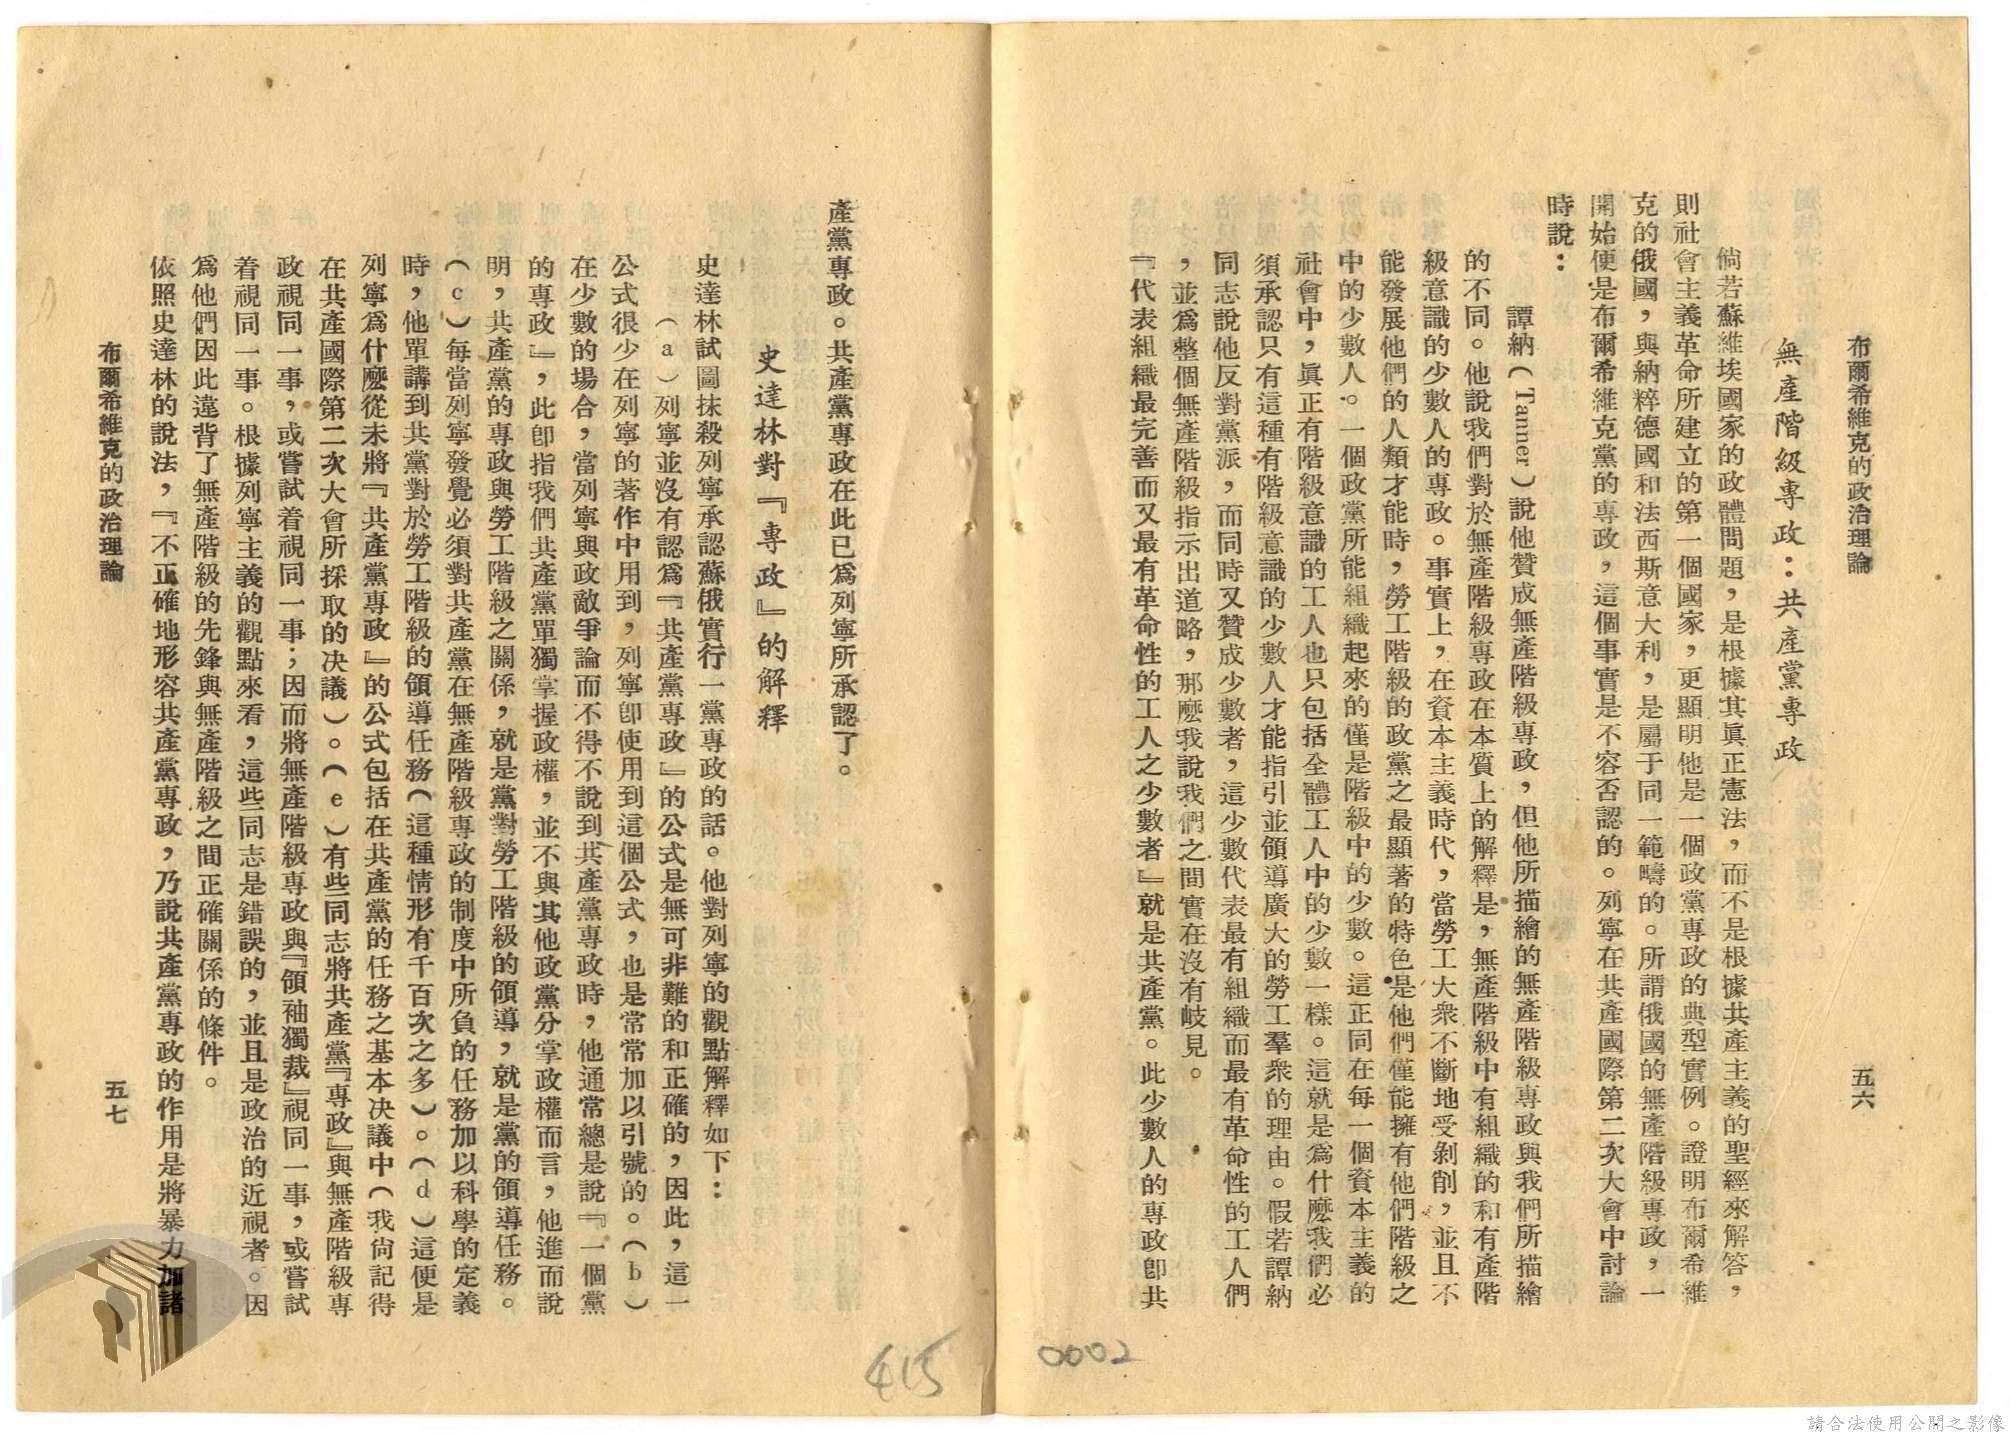 布爾希維克的政治理論
五六
無產階級專政：共產黨專政
倘若蘇維埃國家的政體問題，是根據其眞正憲法，而不是根據共產主義的聖經來解答，
則社會主義革命所建立的第一個國家，更顯明他是一個政黨專政的典型實例。證明布爾希維
克的俄國，與納粹德國和法西斯意大利，是屬于同一範疇的。所謂俄國的無產階級專政，一
開始便是布爾希維克黨的專政，這個事實是不容否認的。列寧在共產國際第二次大會中討論
時說：
譚納（Tanner）說他贊成無產階級專政，但他所描繪的無產階級專政與我們所描繪
的不同。他說我們對於無產階級專政在本質上的解釋是，無產階級中有組織的和有產階
級意識的少數人的專政。事實上，在資本主義時代，當勞工大衆不斷地受剝削，並且不
能發展他們的人類才能時，勞工階級的政黨之最顯著的特色是他們僅能擁有他們階級之
中的少數人。一個政黨所能組織起來的僅是階級中的少數。這正同在每一個資本主義的
社會中，眞正有階級意識的工人也只包括全體工人中的少數一樣。這就是爲什麼我們必
須承認只有這種有階級意識的少數人才能指引並領導廣大的勞工羣衆的理由。假若譚納
同志說他反對黨派，而同時又贊成少數者，這少數代表最有組織而最有革命性的工人們
，並爲整個無產階級指示出道略，那麼我說我們之間實在沒有岐見。
『代表組織最完善而又最有革命性的工人之少數者』就是共產黨。此少數人的專政卽共
產黨專政。共產黨專政在此已爲列寧所承認了。
史達林對『專政』的解釋
史達林試圖抹殺列寧承認蘇俄實行一黨專政的話。他對列寧的觀點解釋如下：
（a）列寧並沒有認爲『共產黨專政』的公式是無可非難的和正確的，因此，這一
公式很少在列寧的著作中用到，列寧卽使用到這個公式，也是常常加以引號的。（b）
在少數的場合，當列寧與政敵爭論而不得不說到共產黨專政時，他通常總是說『一個黨
的專政』，此卽指我們共產黨單獨掌握政權，並不與其他政黨分掌政權而言，他進而說
明，共產黨的專政與勞工階級之關係，就是黨對勞工階級的領導，就是黨的領導任務。
（c）每當列寧發覺必須對共產黨在無產階級專政的制度中所負的任務加以科學的定義
時，他單講到共黨對於勞工階級的領導任務（這種情形有千百次之多）。（d）這便是
列寧爲什麼從未將『共產黨專政』的公式包括在共產黨的任務之基本決議中（我尙記得
在共產國際第二次大會所採取的決議）。（e）有些同志將共產黨『專政』與無產階級專
政視同一事，或嘗試着視同一事；因而將無產階級專政與『領袖獨裁』視同一事，或嘗試
着視同一事。根據列寧主義的觀點來看，這些同志是錯誤的，並且是政治的近視者。因
爲他們因此違背了無產階級的先鋒與無產階級之間正確關係的條件。
依照史達林的說法，『不正確地形容共產黨專政，乃說共產黨專政的作用是將暴力加諸
布爾希維克的政治理論
五七
415
0002
請合法使用公開之影像